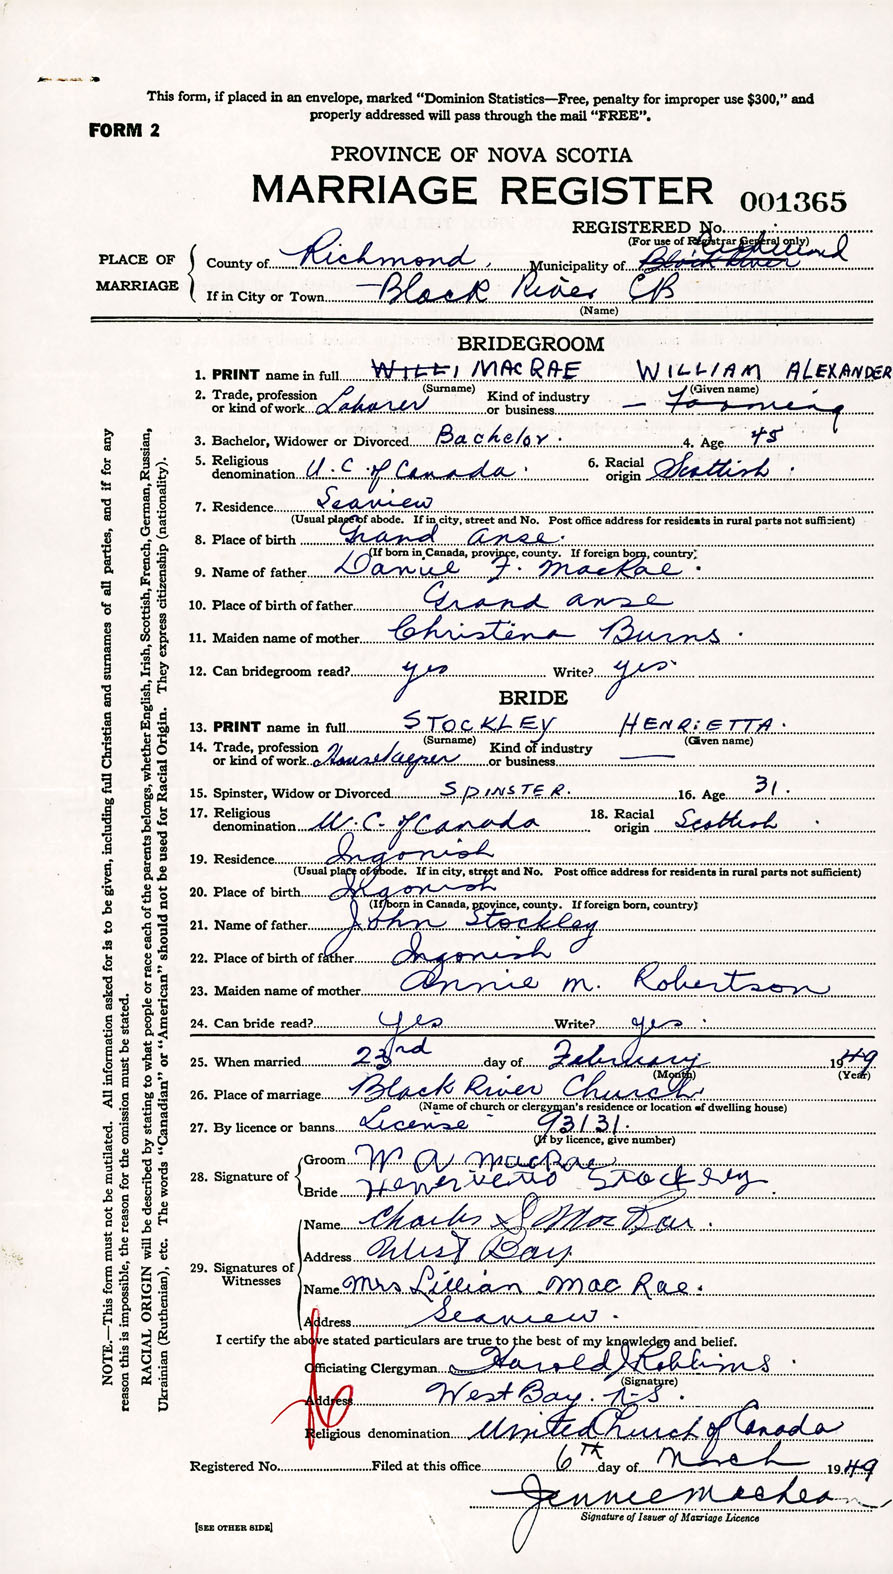 This form, if placed in an envelope, marked “Dominion Statistics—Free, penalty for improper use $300,” and
properly addressed will pass through the mail “FREE”.
FORM 2
PROVINCE OF NOVA SCOTIA
MARRIAGE REGISTER 001365
REGISTERED No.
(For use of Registrar General only)
PLACE OF MARRIAGE
County of Richmond Municipality of Black River
If in City or Town Black River CB
(Name)
BRIDEGROOM
1. PRINT name in full WILLI MACRAE WILLIAM ALEXANDER
(Surname) (Given name)
2. Trade, profession or kind of work Laborer Kind of industry or business — Farming
3. Bachelor, Widower or Divorced Bachelor. 4. Age 45
5. Religious denomination U.C. of Canada. 6. Racial origin Scottish.
7. Residence Seaview
(Usual place of abode. If in city, street and No. Post office address for residents in rural parts not sufficient)
8. Place of birth Grand Anse.
(If born in Canada, province, county. If foreign born, country)
9. Name of father Daniel F. MacRae.
10. Place of birth of father Grand anse
11. Maiden name of mother Christena Burns.
12. Can bridegroom read? yes Write? yes.
BRIDE
13. PRINT name in full STOCKLEY HENRIETTA.
(Surname) (Given name)
14. Trade, profession or kind of work Housekeeper Kind of industry or business —
15. Spinster, Widow or Divorced SPINSTER. 16. Age 31.
17. Religious denomination U.C. of Canada 18. Racial origin Scottish.
19. Residence Ingonish
(Usual place of abode. If in city, street and No. Post office address for residents in rural parts not sufficient)
20. Place of birth Ingonish
(If born in Canada, province, county. If foreign born, country)
21. Name of father John Stockley
22. Place of birth of father Ingonish
23. Maiden name of mother Annie M. Robertson
24. Can bride read? Yes Write? yes.
25. When married 23rd day of February 1949
(Month) (Year)
26. Place of marriage Black River Church
(Name of church or clergyman's residence or location of dwelling house)
27. By licence or banns License 93131.
(If by licence, give number)
28. Signature of
Groom W A MacRae
Bride Henrietta Stockley
29. Signatures of Witnesses
Name Charles S MacRae.
Address West Bay
Name Mrs Lillian MacRae.
Address Seaview.
I certify the above stated particulars are true to the best of my knowledge and belief.
Officiating Clergyman Harold J Robbins.
(Signature)
Address West Bay. N-S.
Religious denomination United Church of Canada
Registered No. Filed at this office 6TH day of March 1949
Jennie MacLean
Signature of Issuer of Marriage Licence
[SEE OTHER SIDE]
NOTE.—This form must not be mutilated. All information asked for is to be given, including full Christian and surnames of all parties, and if for any
reason this is impossible, the reason for the omission must be stated.
RACIAL ORIGIN will be described by stating to what people or race each of the parents belongs, whether English, Irish, Scottish, French, German, Russian,
Ukrainian (Ruthenian), etc. The words “Canadian” or “American” should not be used for Racial Origin. They express citizenship (nationality).